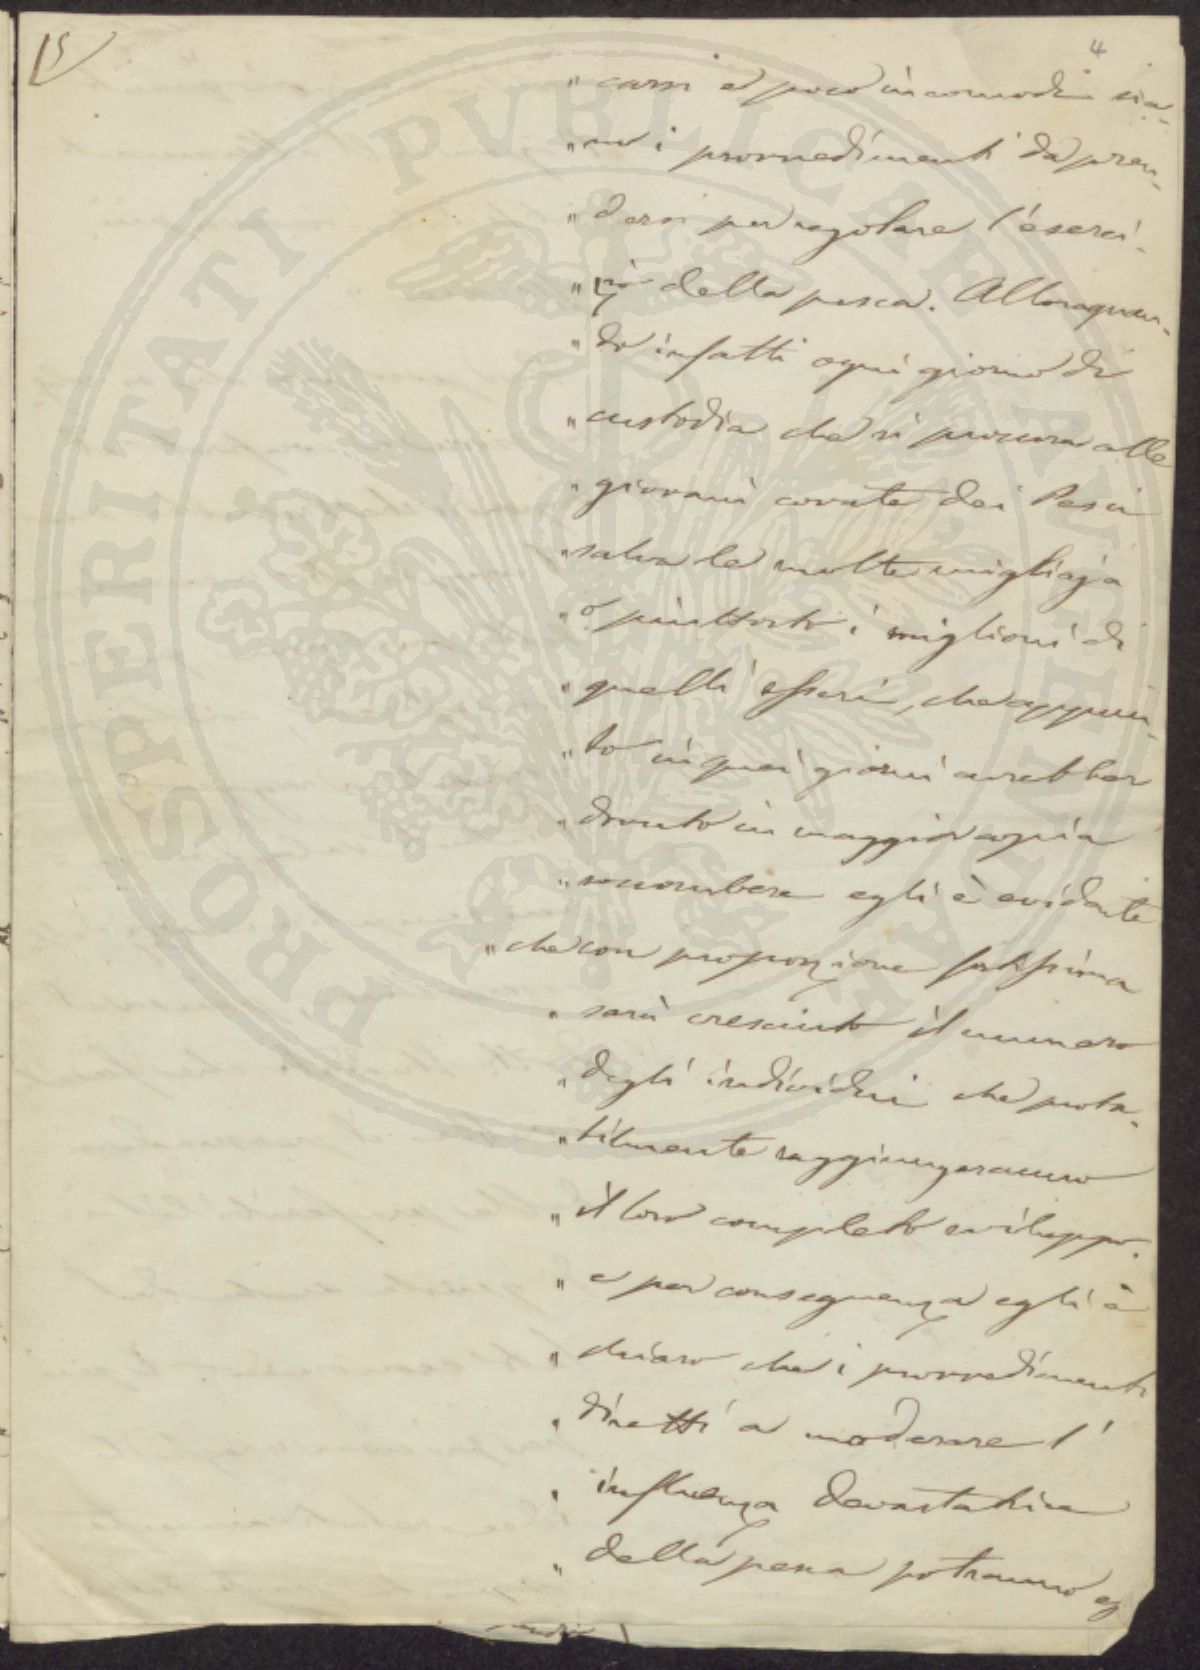 15
4
" carsi e poco incomodi sia-
" no i provvedimenti da pren-
" dersi per regolare l'eserci-
" zio della pesca. Alloraquan-
" do infatti ogni giorno di
" custodia che si procura alle
" giovani covate dei Pesci
" salva le molte migliaja
" o piuttosto i miglioni di
" quelli esseri, che appun-
" to in quei giorni avrebber
" dovuto in maggior copia
" soccombere egli è evidente
" che con proporzione fortissima
" sarà cresciuto il numero
" degli individui che proba-
" bilmente raggiungeranno
" il loro completo sviluppo.
" e per conseguenza egli è
" chiaro che i provvedimenti
" diretti a moderare l'
" influenza devastatrice
" della pesca potranno
PROSPERITATI PVBLICAE AVGENDAE